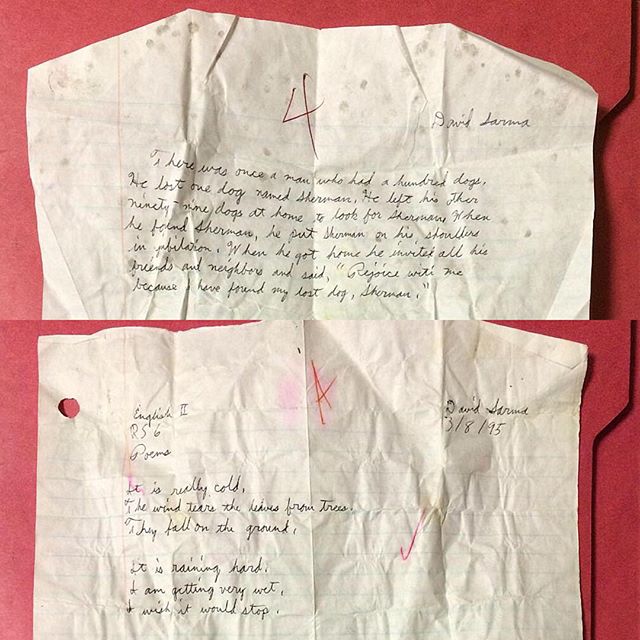 4
David Sarma
There was once a man who had a hundred dogs.
He lost one dog named Sherman. He left his other
ninety-nine dogs at home to look for Sherman. When
he found Sherman, he put Sherman on his shoulders
in jubilation. When he got home he invited all his
friends and neighbors and said, "Rejoice with me
because I have found my lost dog, Sherman."
A
English II
David Sarma
3/8/95
RS 6
Poems
It is really cold.
The wind tears the leaves from trees.
They fall on the ground.
It is raining hard.
I am getting very wet.
I wish it would stop.